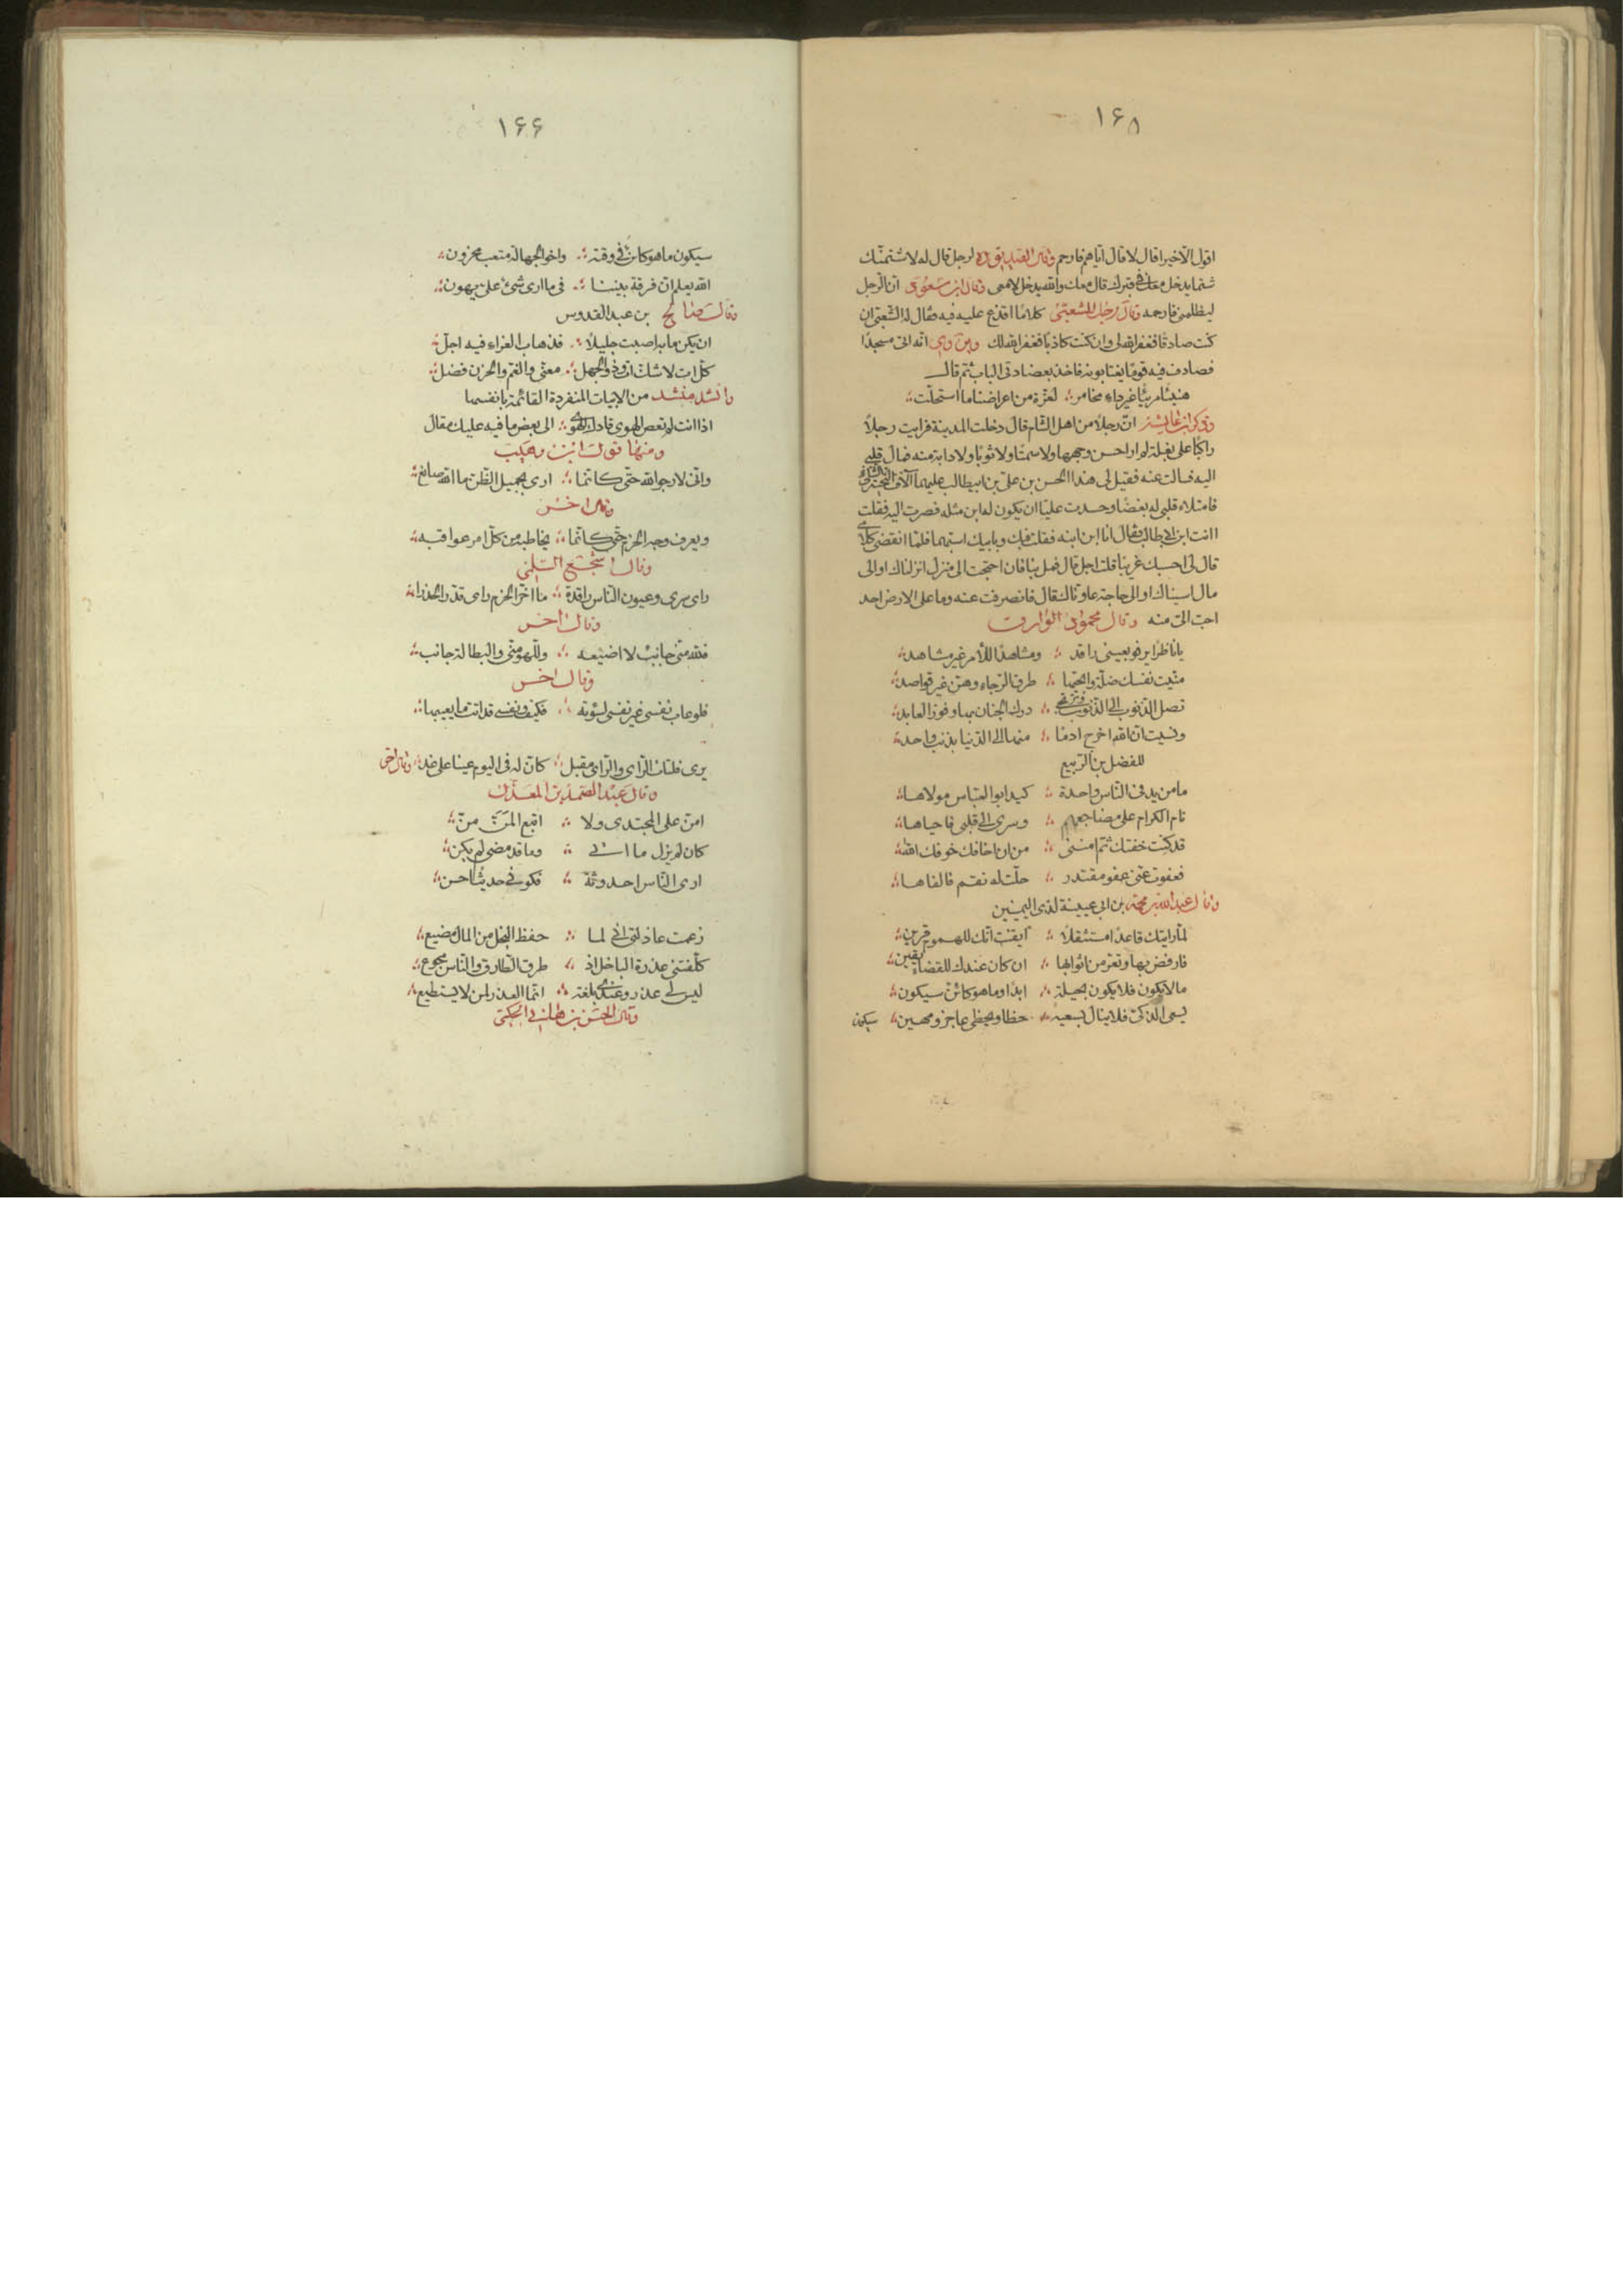 ١۶۵
اقول الا خيرا قال لا قال اياهم فارحم وقال الصديق ره لرجل قال له لاشتمنّك
شتما يدخل معك في قبرك قال معك والله يدخل لا معى وقال ابن مسعود ان الرجل
ليظلمنى فارحمه وقال رجل للشعبىّ كلاما اقذع عليه فيه فقال له الشعبى ان
كنت صادقا فغفر الله لى وان كنت كاذبا فغفر الله لك ويروى انه اتى مسجدا
فصادف فيه قوما يغتابونه فاخذ بعضادتى الباب ثم قال
هنيئا مريئا غير داء مخامر؛ لعزّة من اعراضنا ما استحلّت؛
وذكر ابن عايشة انّ رجلا من اهل الشام قال دخلت المدينة فرايت رجلا
راكبا على بغلة لم ار احسن وجها ولا سمتا ولا ثوبا ولا دابة منه فمال قلبى
اليه فسالت عنه فقيل لى هذا الحسن بن على بن ابيطالب عليهما آلاف التحية
فامتلاء قلبى له بغضا وحسدت عليّا ان يكون له ابن مثله فصرت اليه فقلت
اانت ابن ابيطالب فقال انا ابن ابنه فقلت فبك وبابيك اسبّهما فلمّا انقضى كلامى
قال لى احسبك غريبا قلت اجل قال فمل بنا فان احتجت الى منزل انزلناك او الى
مال اسيناك او الى حاجة عاوناك قال فانصرفت عنه وما على الارض احد
احبّ الىّ منه وقال محمود الوارق
يا ناظرا يرنو بعينى راقد ؛ ومشاهدا للامر غير مشاهد؛
منيت نفسك ضلّة وابحتها ؛ طرق الرجاء وهنّ غير قواصد؛
تصل الذنوب الى الذنوب وترتجى ؛ درك الجنان بها وفوز العابد؛
ونسيت ان الله اخرج ادما ؛ منها الى الدنيا بذنب واحد؛
للفضل بن الربيع
ما من يد فى الناس واحدة ؛ كيد ابو العباس مولاها؛
نام الكرام على مضاجعهم ؛ وسرى الى قلبى فاحياها؛
قد كنت خفتك ثم امننى ؛ من ان اخافك خوفك الله؛
فعفوت عنى عفو مقتدر ؛ حلّت له نقم فالفاها؛
وقال عبدالله بن محمد بن ابى عيينة لذى اليمينين
لمّا رايتك قاعدا مستثقلا ؛ ايقنت انّك للهموم قرين؛
فارفض بها وتعرّ من اثوابها ؛ ان كان عندك للقضاء يقين؛
مالا يكون فلا يكون بحيلة ؛ ابدا وما هو كائن سيكون؛
يسعى الذكىّ فلا ينال بسعيه ؛ حظا ويحظى عاجز ومهين؛ سيكون
١۶۶
سيكون ما هو كائن فى وقته ؛ واخو الجهالة متعب محزون؛
الله يعلم انّ فرقة بيننا ؛ فى ما ارى شىء علىّ يهون؛
وقال صالح بن عبد القدوس
ان يكن ما به اصبت جليلا ؛ فذهاب العزاء فيه اجلّ؛
كلّ ات لا شك ات وذو الجهل ؛ معنّى والغم والحزن فضل؛
وانشد منشد من الابيات المنفردة القائمة بانفسها
اذا انت لم تعص الهوى قادك الهوى ؛ الى بعض ما فيه عليك مقال
ومنها قول ابن وهيب
وانّى لارجو الله حتّى كانّما ؛ ارى بجميل الظّن ما الله صانع؛
وقال اخر
ويعرف وجه الحزم حتّى كانّما ؛ يخاطبه من كلّ امر عواقبه؛
وقال اشجع السّلمى
راى سرى وعيون الناس راقدة ؛ ما اخّر الحزم راى قدّر الحذرا؛
وقال اخر
فلله منّى جانب لا اضيعه ؛ وللهو منّى والبطالة جانب؛
وقال اخر
فلو عاب نفسى غير نفسى لسؤته ؛ فكيف ونفسى قد اتت ما يعيبها؛
يرى فلتات الراى والراى مقبل ؛ كانّ له فى اليوم عينا على غد؛ وقال اخر
وقال عبد الصمد بن المعذّل
امنّ على المجتدى ولا ؛ اتبع المنّ منّ؛
كان لم يزل ما اتى ؛ وما قد مضى لم يكن؛
ارى الناس احدوثة ؛ فكونى حديثا حسن؛
زعمت عاذلتى انّى لما ؛ حفظ البخل من المال مضيع؛
كلّفتنى عذرة الباخل اذ ؛ طرق الطارق والناس هجوع؛
ليس لى عذر وعندى بلغة ؛ انّما العذر لمن لا يستطيع؛